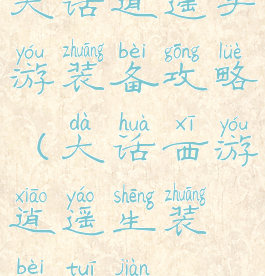 大话逍遥手
yóu zhuāng bèi gōng lüè
游装备攻略
dà huà xī yóu
（大话西游
xiāo yáo shēng zhuāng
逍遥生装
bèi tuī jiàn